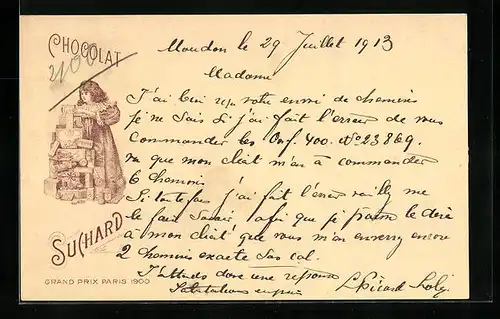 CHOCOLAT
2100
Moudon le 29 Juillet 1913
Madame
J'ai bien reçu votre envoi de chemises
je ne sais si j'ai fait l'erreur de vous
commander les Ouf. 400. No 23869.
vu que mon client m'en a commander
6 chemises
Si toutefois j'ai fait l'erreur veuillez me
le faire savoir afin que je puisse le dire
à mon client que vous m'en enverrez encore
2 chemises exacte sans col.
J'attends donc une réponse
Salutations
L Picard
SUCHARD
GRAND PRIX PARIS 1900